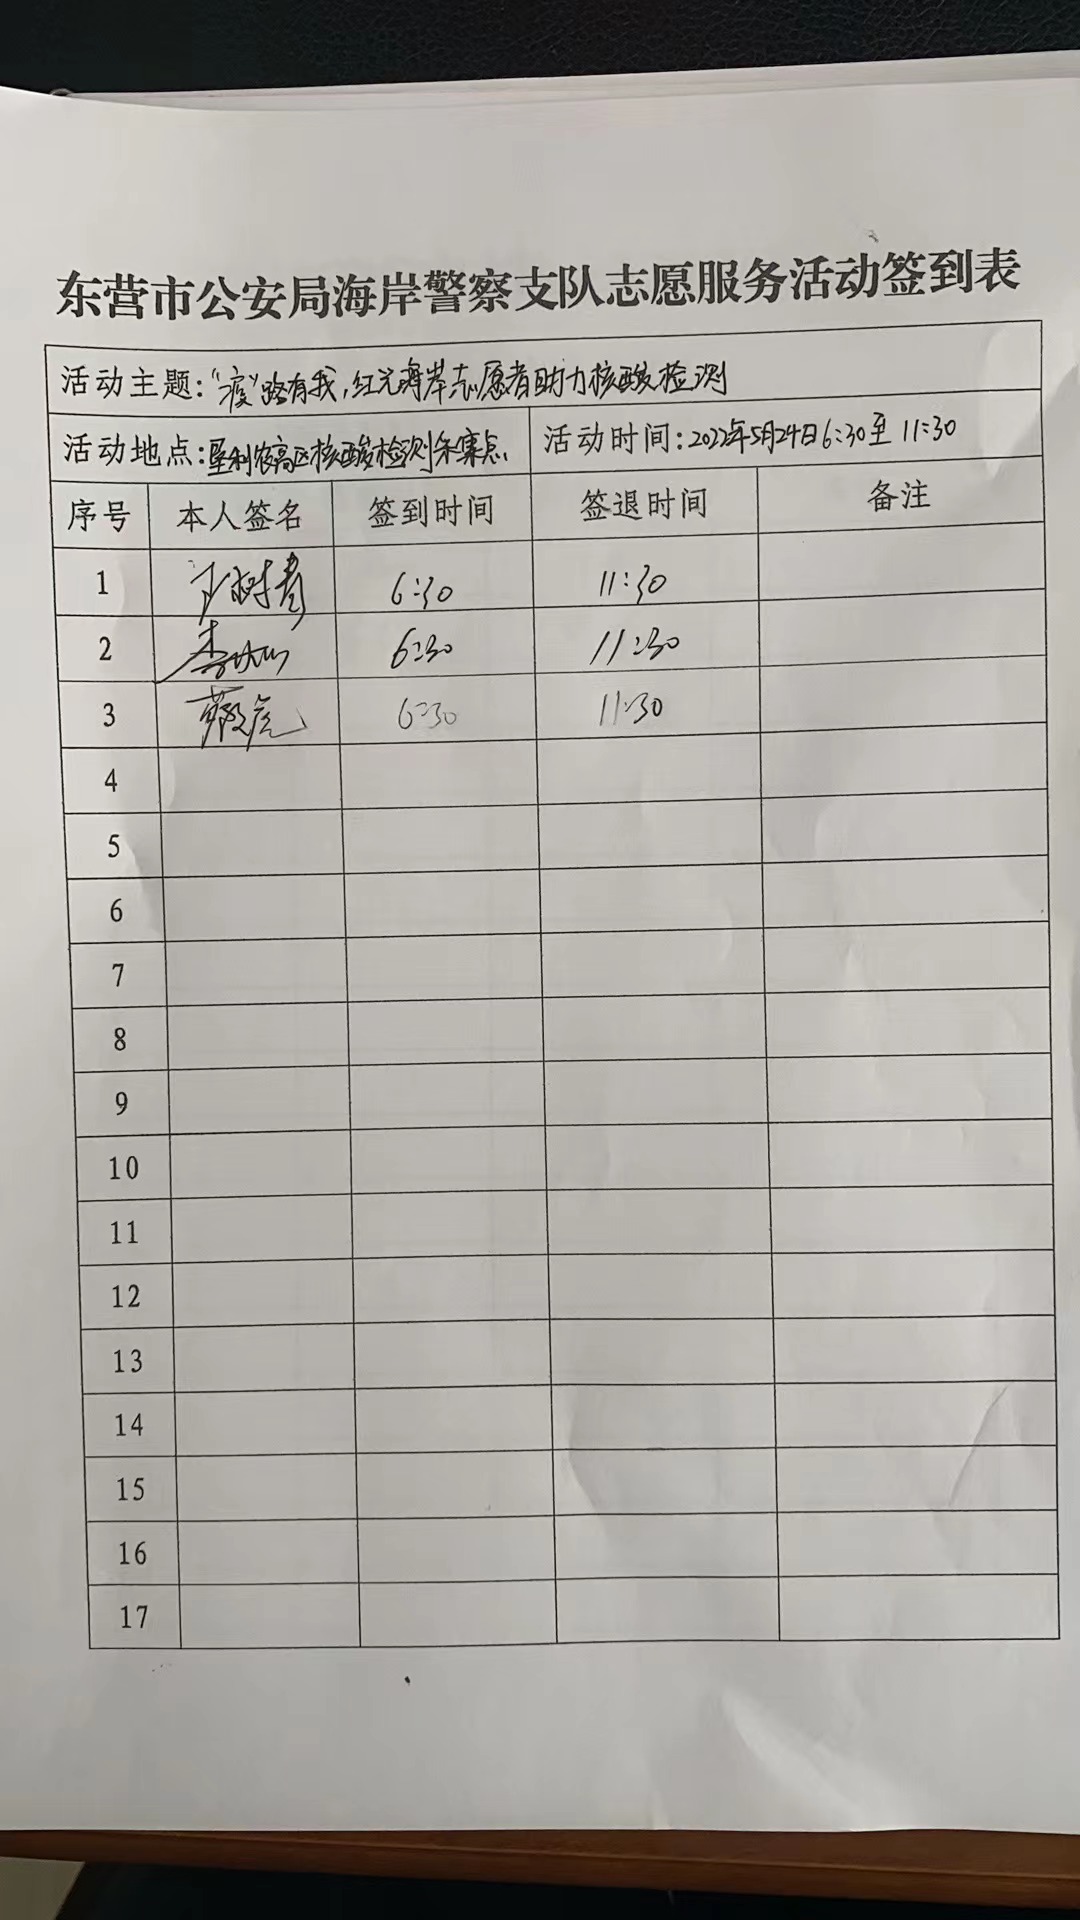 东营市公安局海岸警察支队志愿服务活动签到表
活动主题:“疫”路有我,红光海岸志愿者助力核酸检测
活动地点:垦利农高区核酸检测采集点 活动时间:2022年5月24日6:30至11:30
序号 本人签名 签到时间 签退时间 备注
1 王树青 6:30 11:30
2 6:30 11:30
3 6:30 11:30
4
5
6
7
8
9
10
11
12
13
14
15
16
17